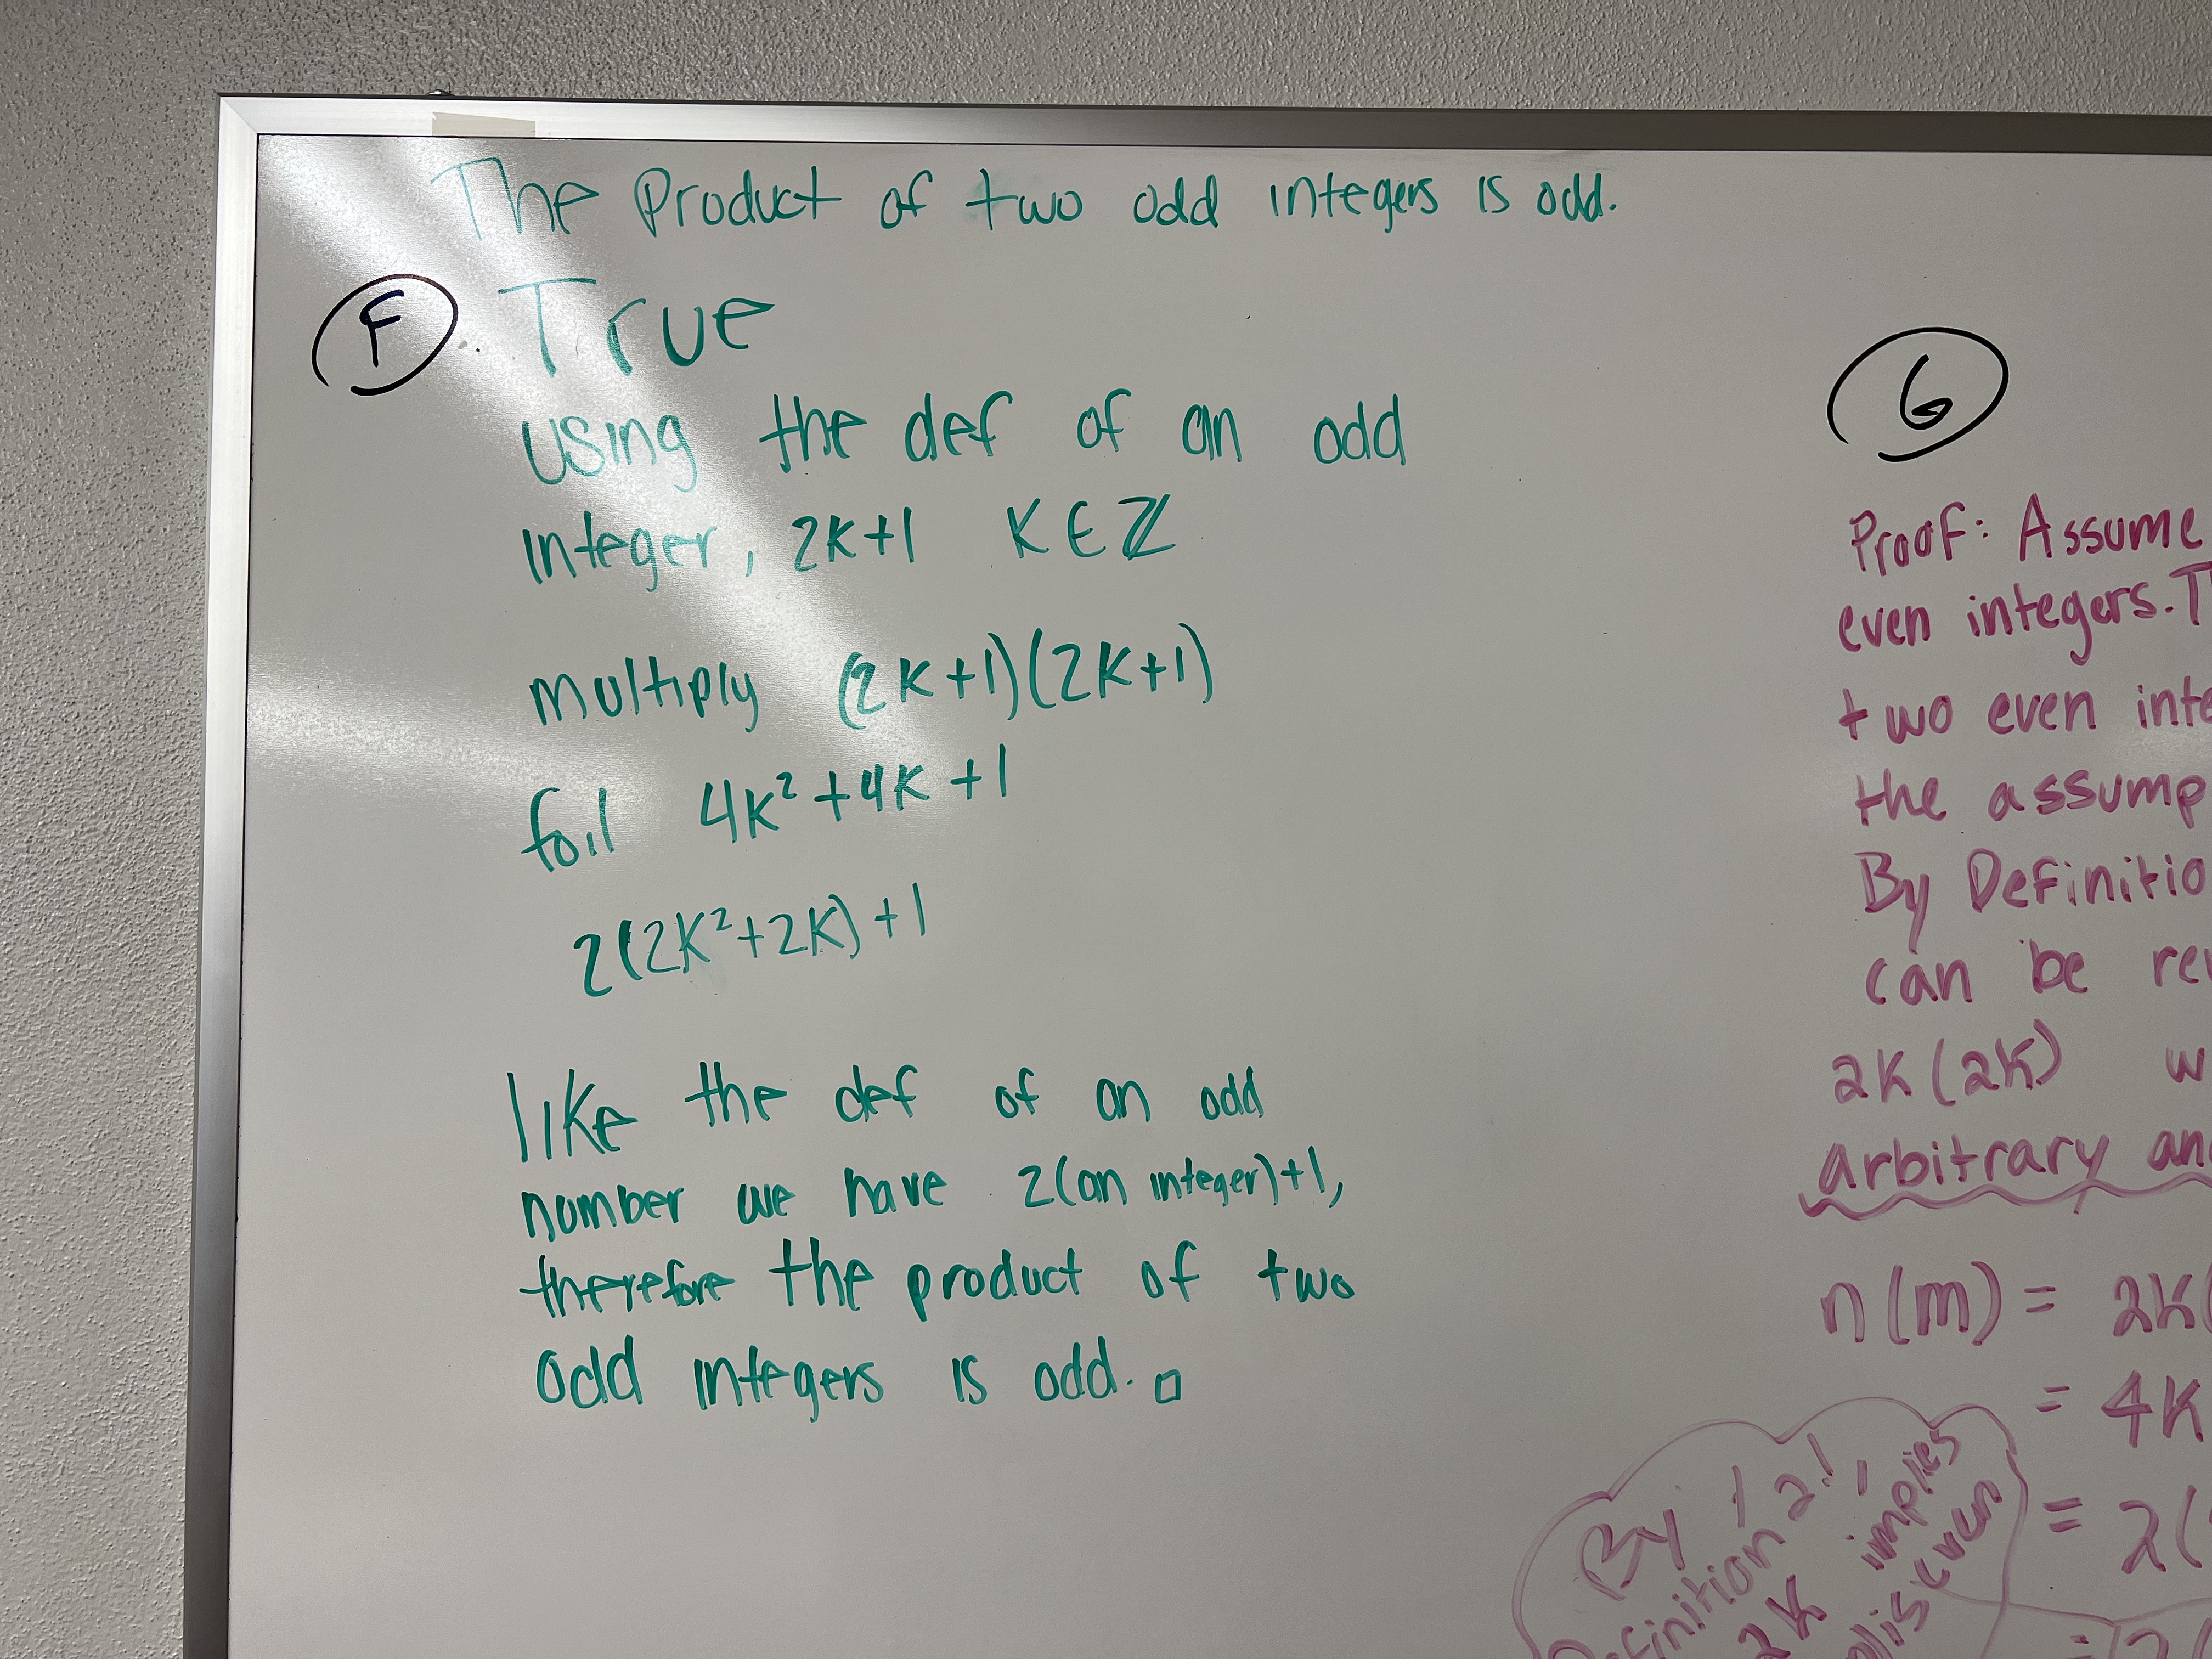 The Product of two odd integers is odd.
F True
using the def of an odd
integer, 2k+1 K ∈ ℤ
multiply (2k+1)(2k+1)
foil 4k² +4k +1
2(2k²+2k)+1
like the def of an odd
number we have 2(an integer)+1,
therefore the product of two
odd integers is odd. □
6
Proof: Assume
even integers. T
two even inte
the assump
By Definitio
can be re
2k(2k) w
Arbitrary an
n(m) = 2k(
= 4k
= 2(
By
implies
2k
even